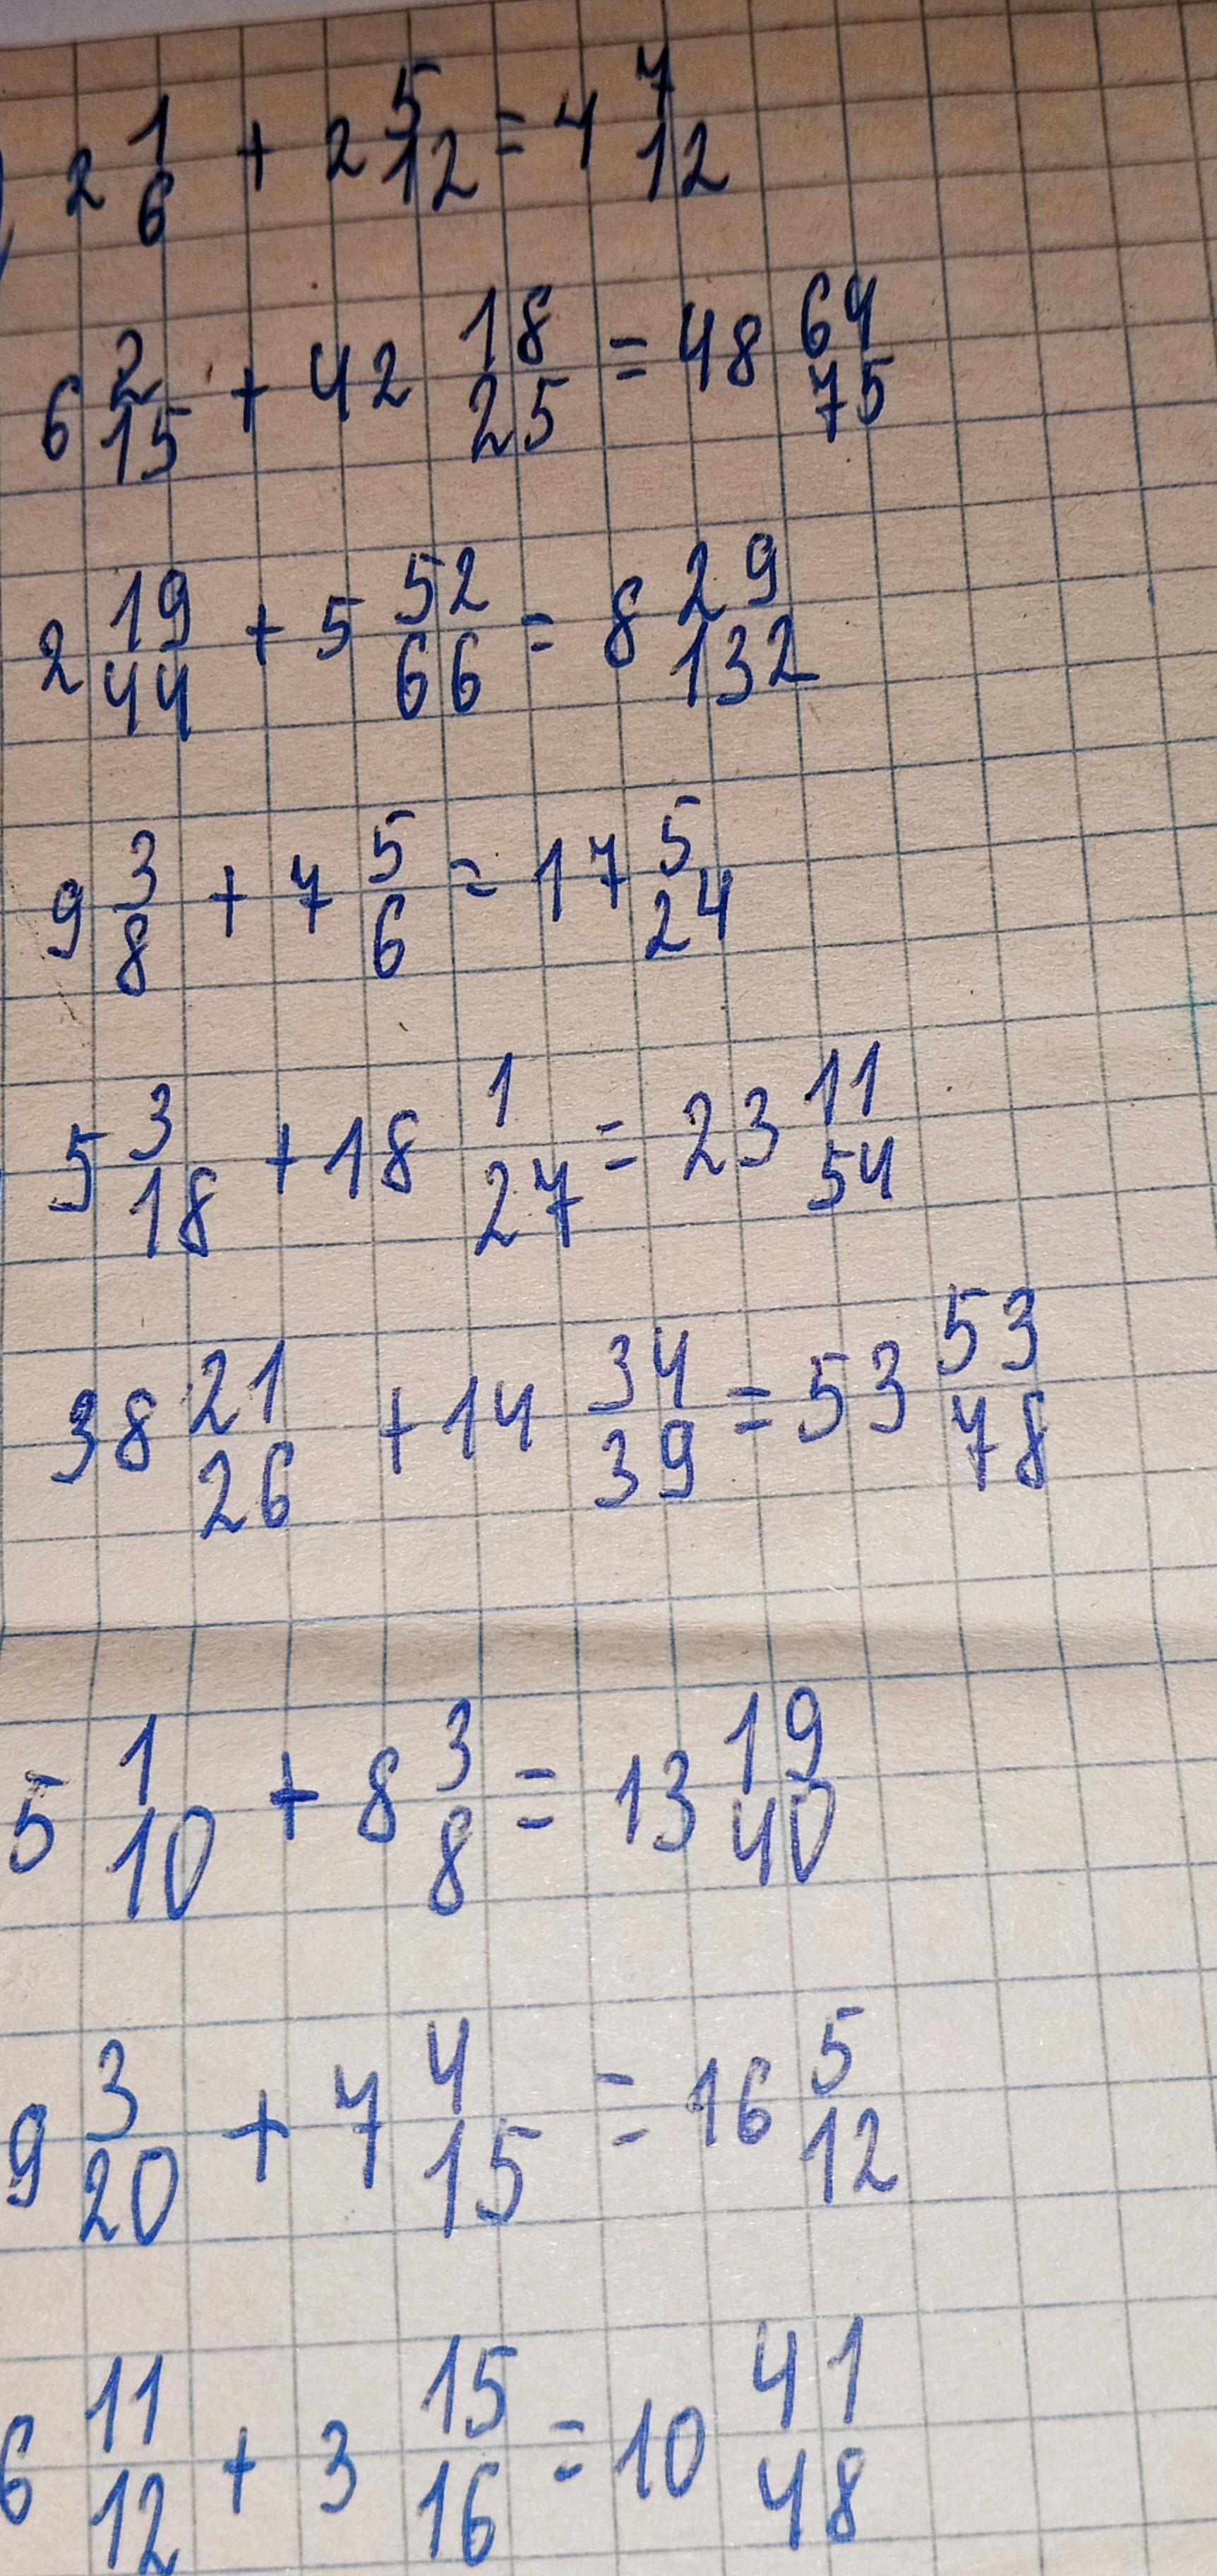 2 1/6 + 2 5/12 = 4 7/12
6 2/15 + 42 18/25 = 48 64/75
2 19/44 + 5 52/66 = 8 29/132
9 3/8 + 7 5/6 = 17 5/24
5 3/18 + 18 1/27 = 23 11/54
38 21/26 + 14 34/39 = 53 53/78
5 1/10 + 8 3/8 = 13 19/40
9 3/20 + 7 4/15 = 16 5/12
6 11/12 + 3 15/16 = 10 41/48